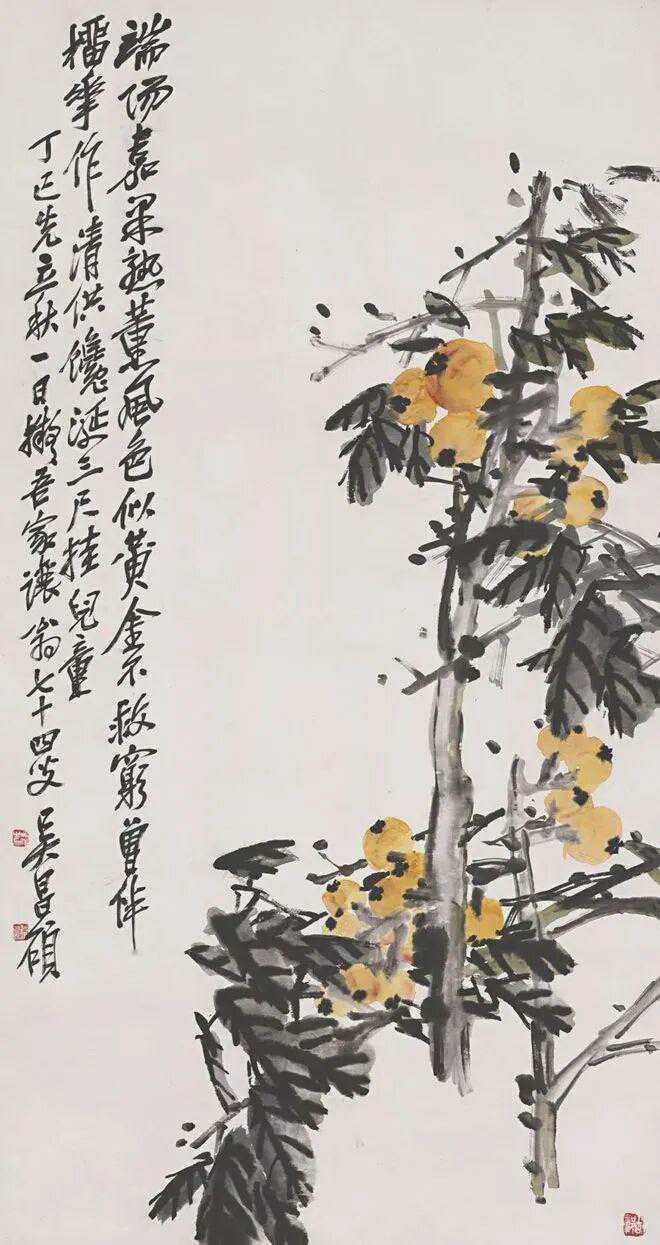 端陽嘉果熟薰風色似黃金不救窮曾伴
榴華作清供饞涎三尺挂兒童
丁巳先立秋一日撫吾家讓翁七十四叟
吳昌碩